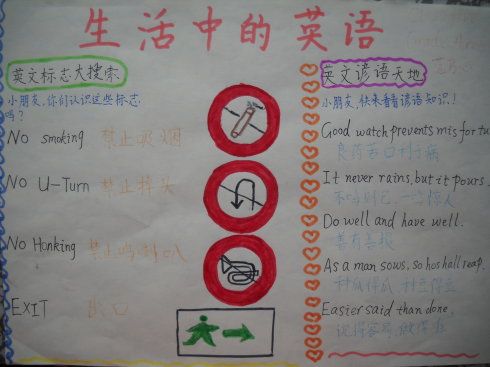 生活中的英语
英文标志大搜索
小朋友，你们认识这些标志
吗？
No smoking 禁止吸烟
No U-Turn 禁止掉头
No Honking 禁止鸣喇叭
EXIT 出口
英文谚语天地
小朋友，快来看看谚语知识！
Good watch prevents misfortu
良药苦口利病
It never rains, but it pours.
不鸣则已，一鸣惊人
Do well and have well.
善有善报
As a man sows, so hoshall reap.
种瓜得瓜 种豆得豆
Easier said than done.
说得容易，做得难